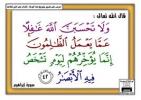 قال الله تعالى :
وَلَا تَحْسَبَنَّ ٱللَّهَ غَٰفِلًا
عَمَّا يَعْمَلُ ٱلظَّٰلِمُونَ
إِنَّمَا يُؤَخِّرُهُمْ لِيَوْمٍ تَشْخَصُ
فِيهِ ٱلْأَبْصَٰرُ
٤٢
سورة إبراهيم